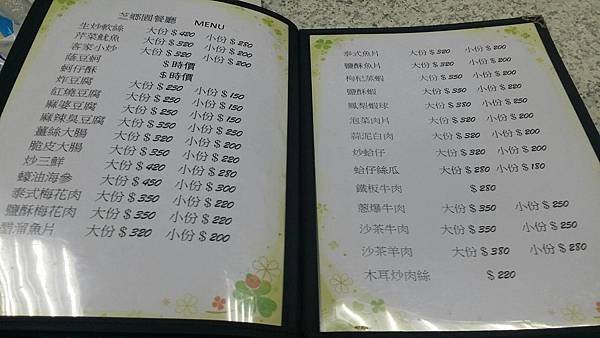 芝鄉園餐廳 MENU
生炒軟絲 大份$420 小份$280
芹菜魷魚 大份$320 小份$200
客家小炒 大份$320 小份$200
蔭豆蚵 $時價
蚵仔酥 $時價
炸豆腐 大份$250 小份$150
紅燒豆腐 大份$250 小份$150
麻婆豆腐 大份$250 小份$150
麻辣臭豆腐 大份$350 小份$250
薑絲大腸 大份$350 小份$220
脆皮大腸 大份$350 小份$220
炒三鮮 大份$420 小份$280
蠔油海參 大份$450 小份$300
泰式梅花肉 大份$350 小份$220
鹽酥梅花肉 大份$350 小份$220
醋溜魚片 大份$320 小份$200
泰式魚片 大份$320 小份$200
鹽酥魚片 大份$320 小份$200
枸杞蒸蝦 大份$350 小份
鹽酥蝦 大份$350 小份
鳳梨蝦球 大份$380 小份$250
泡菜肉片 大份$320 小份$200
蒜泥白肉 大份$320 小份$200
炒蛤仔 大份$320 小份$200
蛤仔絲瓜 大份$280 小份$180
鐵板牛肉 $280
蔥爆牛肉 大份$350 小份$250
沙茶牛肉 大份$350 小份$250
沙茶羊肉 大份$380 小份$280
木耳炒肉絲 $220